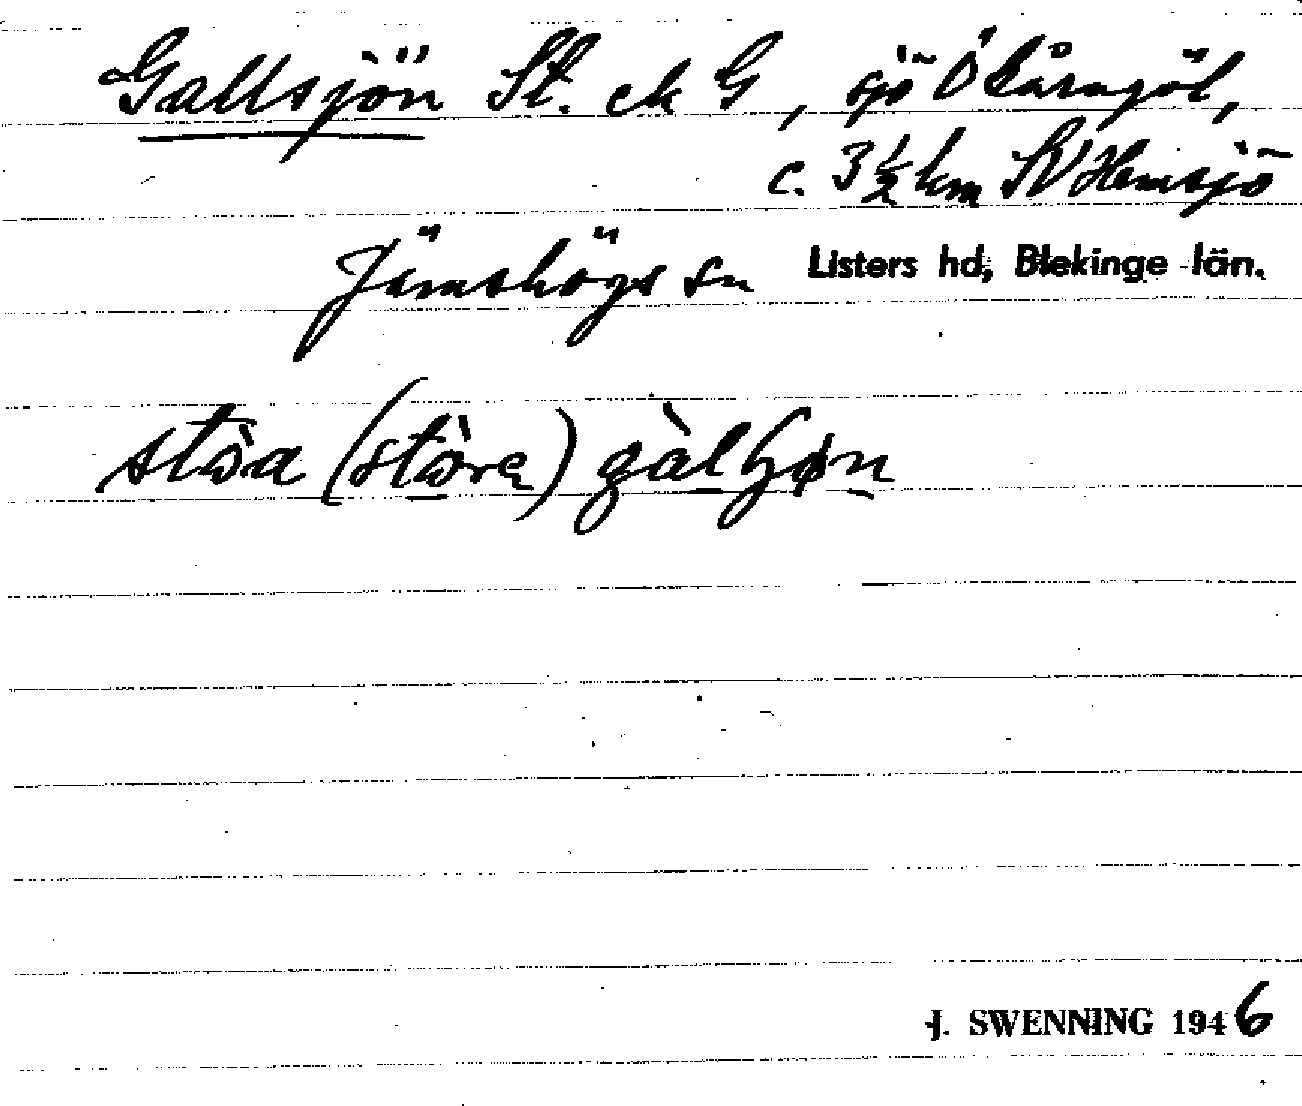 Gallsjön St. ek G, sjö Ö Kåragöl,
c. 3½ km SV Hemsjö
Jämshögs sn Listers hd, Blekinge län.
stòa (stòra) gàlʃøn
J. SWENNING 1946